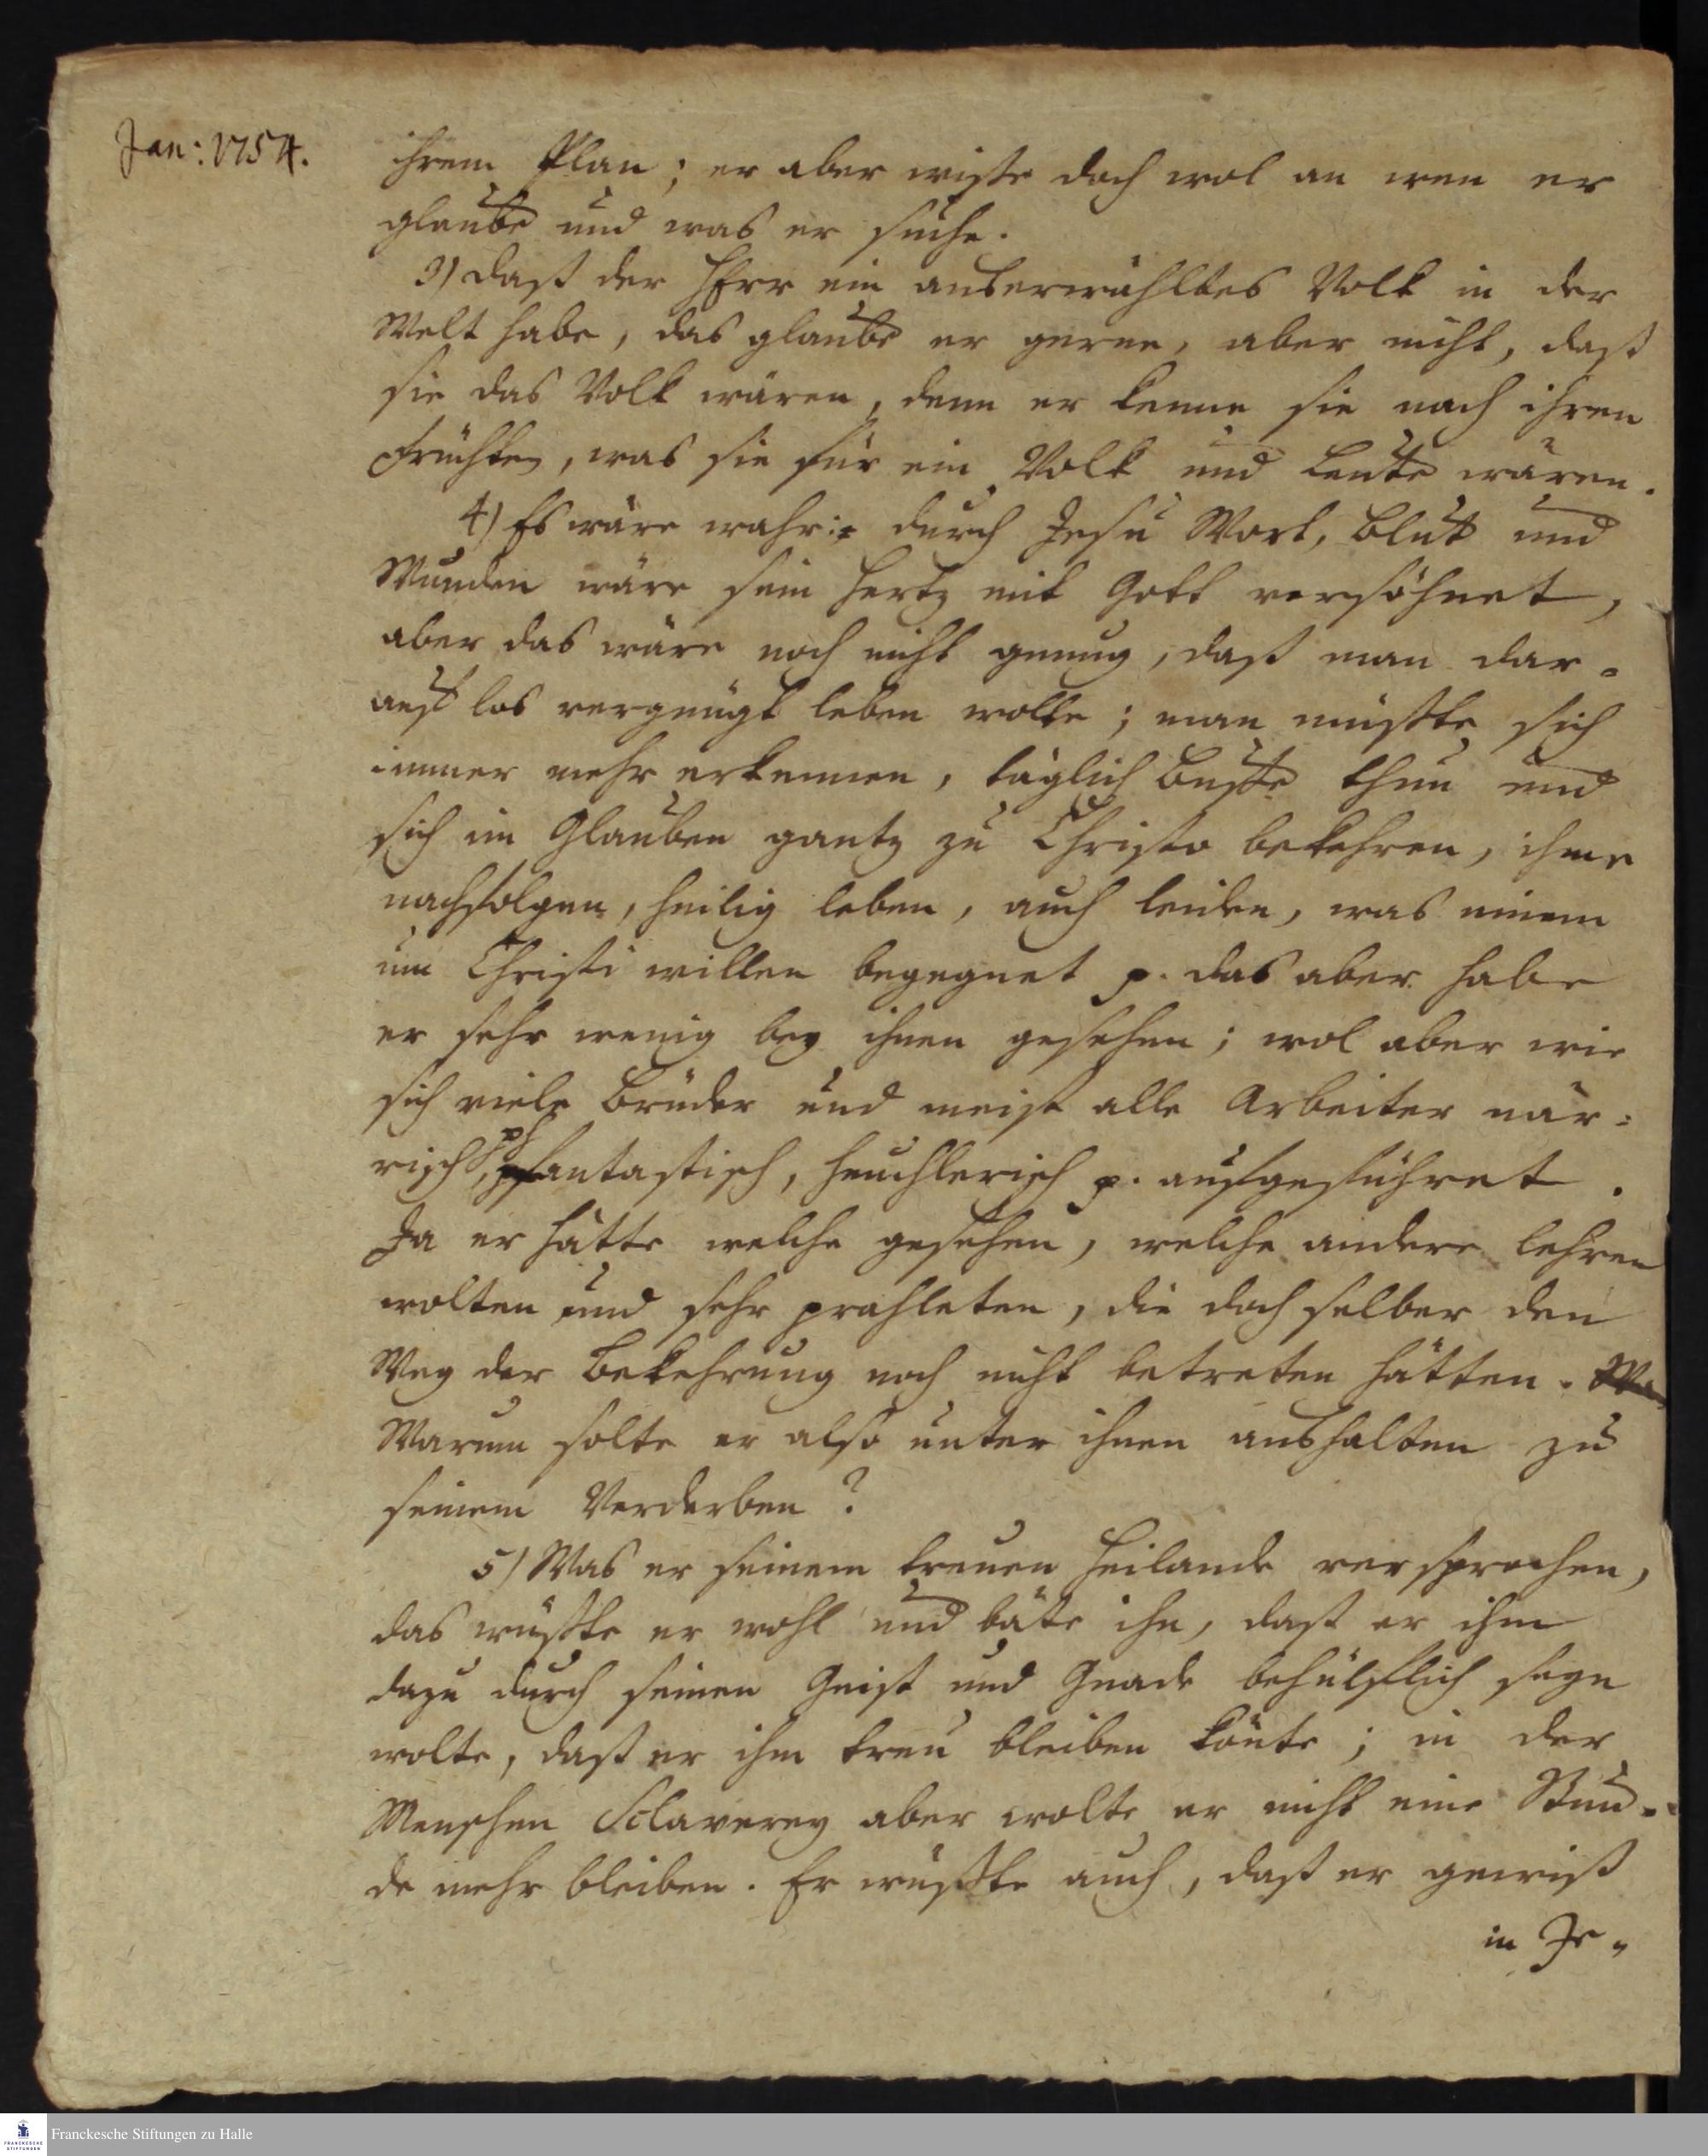 Jan: 1754.
ihrem Plan; er aber wiste doch wol an wen er
glaube und was er suche.
3) daß der HErr ein auserwähltes Volk in der
Welt habe, das glaube er gerne, aber nicht, daß
sie das Volk wären, denn er kenne sie nach ihren
Früchten, was sie für ein Volk und Leute wären.
4) Es wäre wahr: durch Jesu Wort, Blut und
Wunden wäre sein Hertz mit Gott versöhnet,
aber das wäre noch nicht genug, daß man dar-
auf los vergnügt leben wolte; man müste sich
immer mehr erkennen, täglich Buße thun und
sich im Glauben gantz zu Christo bekehren, ihme
nachfolgen, heilig leben, auch leiden, was einem
um Christi willen begegnet p. das aber habe
er sehr wenig bey ihnen gesehen; wol aber wie
sich viele Brüder und meist alle Arbeiter när-
risch, phantastisch, heuchlerisch p. aufgeführet.
Ja er hätte welche gesehen, welche andere lehren
wolten und sehr prahleten, die doch selber den
Weg der Bekehrung noch nicht betreten hätten.
Warum solte er also unter ihnen aushalten zu
seinem Verderben?
5) Was er seinem treuen Heilande versprochen,
das wüste er wohl und bäte ihn, daß er ihm
dazu durch seinen Geist und Gnade behülflich seyn
wolte, daß er ihm treu bleiben könte; in der
Menschen Sclaverey aber wolte er nicht eine Stun-
de mehr bleiben. Er wüste auch, daß er gewiß
in Je-
Franckesche Stiftungen zu Halle